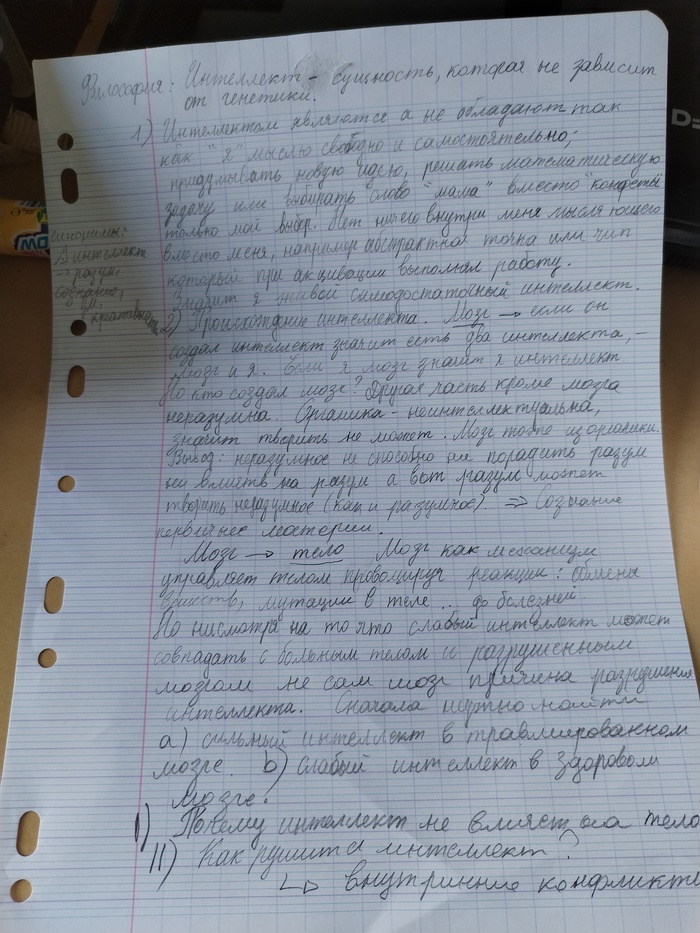 Философия: Интеллект – сущность, которая не зависит
от генетики.
1) Интеллектом являются а не обладают так
как "я" мыслю свободно и самостоятельно;
придумывать новую идею, решать математическую
задачу или выбирать слово "мама" вместо "конфеты"
только мой выбор. Нет ничего внутри меня мысля
вместо меня, например абстрактной точка или чип
который при акцивации выполнял работу.
Значит я живой самодостаточный интеллект.
синонимы:
интеллект
разум,
сознание,
ум,
креативный
2) Происхождение интеллекта. Мозг → если он
создал интеллект значит есть два интеллекта, –
мозг и я. Если я мозг значит я интеллект
Но кто создал мозг? Другая часть кроме мозга
неразумна. Органика – неинтеллектуальна,
значит творить не может. Мозг тоже из органики.
Вывод: неразумное не способно ни породить разум
ни влиять на разум а вот разум может
творить неразумное (как и разумное) ⇒ Сознание
первичнее материи.
Мозг → тело Мозг как механизм
управляет телом провоцируя реакции: обмена
веществ, мутации в теле .. до болезней.
Но нисмотря на то что слабый интеллект может
совпадать с больным телом и разрушенным
мозгом не сам мозг причина разрушения
интеллекта. Сначала нужно найти
a) сильный интеллект в травмированном
мозге. b) слабый интеллект в здоровом
мозге.
I) Почему интеллект не влияет на тело
II) Как рушится интеллект?
↳ внутринние конфликты
WOW
D